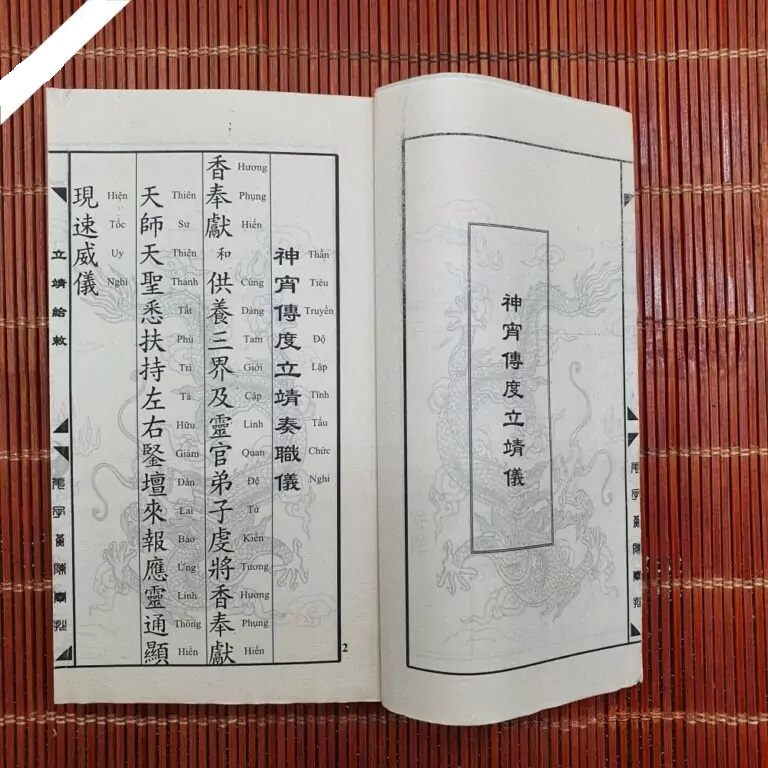 神宵傳度立靖儀
Thần Tiêu Truyền Độ Lập Tĩnh Tấu Chức Nghi
神宵傳度立靖奏職儀
Hương Phụng Hiến Cúng Dàng Tam Giới Cập Linh Quan Đệ Tử Kiền Tương Hương Phụng Hiến
香奉獻和供養三界及靈官弟子虔將香奉獻
Thiên Sư Thiên Thánh Tất Phù Trì Tả Hữu Giám Đàn Lai Báo Ứng Linh Thông Hiển
天師天聖悉扶持左右鋻壇來報應靈通顯
Hiện Tốc Uy Nghi
現速威儀
立靖給敕
2